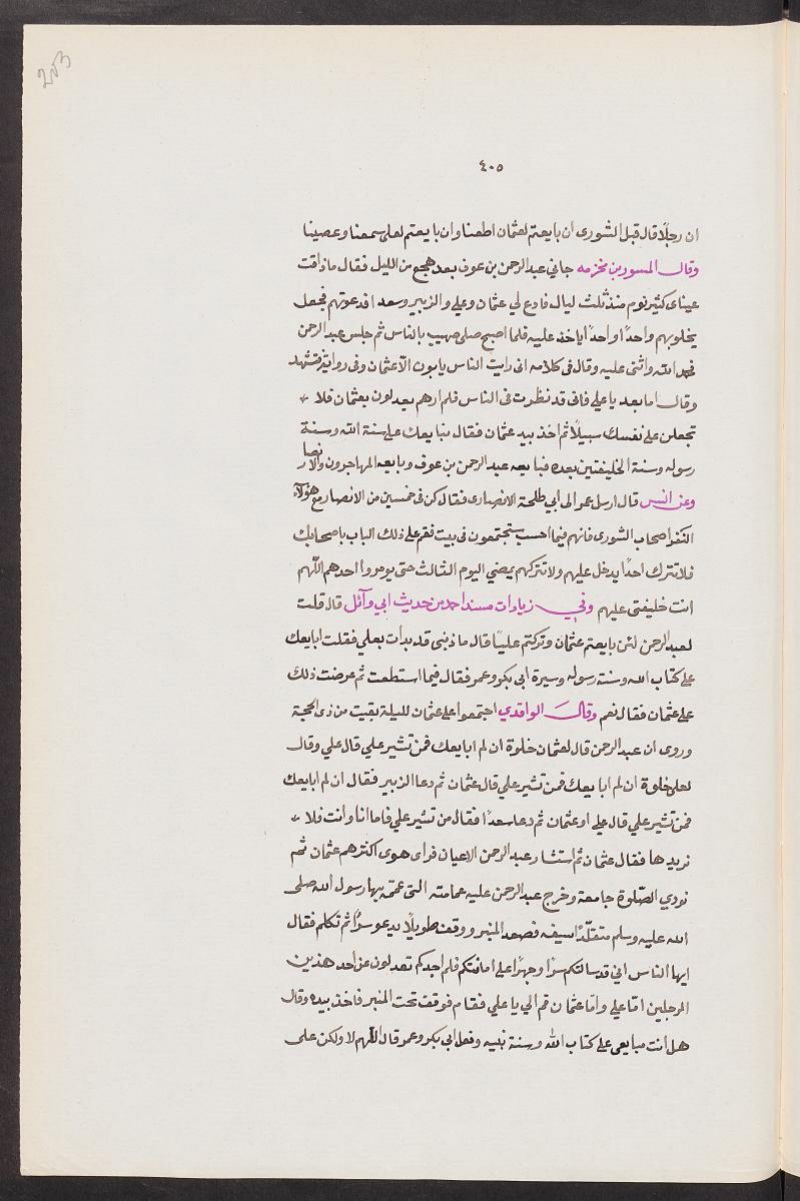 203
٤٠٥
ان رجلًا قال قبل الشورى ان بايعتم لعثمان اطعنا وان بايعتم لعلى سمعنا وعصينا
وقال المسور بن مخرمه جانى عبد الرحمن بن عوف بعد هجع من الليل فقال ماذاقت
عيناى كثير نوم منذ ثلث ليال فادع لي عثمان وعلي والزبير وسعد افدعوتهم فجعل
يخلوبهم واحدًا واحدًا ياخذ عليه فلما اصبح صلى صهيب بالناس ثم جلس عبد الرحمن
فحمد الله واثنى عليه وقال فى كلامه انى رايت الناس يابون الآعثمان وفى رواية فتشهد
وقال اما بعد يا علي فانى قد نظرت فى الناس فلم ارهم يعدلون بعثمان فلا
تجعلن على نفسك سبيلًا ثم اخذ بيد عثمان فقال نبايعك على سنة الله وسنة
رسوله وسنة الخليفتين بعده فبايعه عبد الرحمن بن عوف وبايعه المهاجرون والانصار
وعن انس قال ارسل عمر الى ابي طلحة الانصارى فقال كن فى خمسين من الانصار مع هؤلآء
النفر اصحاب الشورى فانهم فيما احسب ستجتمعون فى بيت فقم على ذلك الباب باصحابك
فلا تترك احدًا يدخل عليهم ولا تتركهم يمضي اليوم الثالث حتى يومروا احدهم اللّهم
انت خليفتى عليهم وفي زيادات مسند احمد من حديث ابي وآئل قال قلت
لعبد الرحمن لئن بايعتم عثمان وتركتم عليًا قال ماذنبى قد بدات بعلي فقلت ابايعك
على كتاب الله وسنة رسوله وسيرة ابى بكر وعمر فقال فيما استطعت ثم عرضت ذلك
على عثمان فقال نعم وقال الواقدي اجتمعوا على عثمان لليلة بقيت من ذى الحجة
وروى ان عبد الرحمن قال لعثمان خلوة ان لم ابايعك فمن تشير علي قال علي وقال
لعلى خلوة ان لم ابايعك فمن تشير علي قال عثمان ثم دعا الزبير فقال ان لم ابايعك
فمن تشير علي قال علي او عثمان ثم دعا سعدًا فقال من تشير علي فاما انا وانت فلا
نريدها فقال عثمان ثم استشار عبد الرحمن الاعيان فراى هوى اكثرهم عثمان ثم
نودي الصّلوة جامعة وخرج عبد الرحمن عليه عمامته التى عممه بها رسول الله صلى
الله عليه وسلم متقلّدًا سيفه فصعد المنبر ووقف طويلًا يدعو سرًا ثم تكلم فقال
ايها الناس اني قد سالتكم سرًا وجهرًا على امانتكم فلم اجدكم تعدلون عن احد هذين
الرجلين امّا علي وامّا عثمان قم الي يا علي فقام فوقف تحت المنبر فاخذ بيده وقال
هل انت مبايعى على كتاب الله وسنة نبيه وفعل ابى بكر وعمر قال اللّهم لا ولكن على